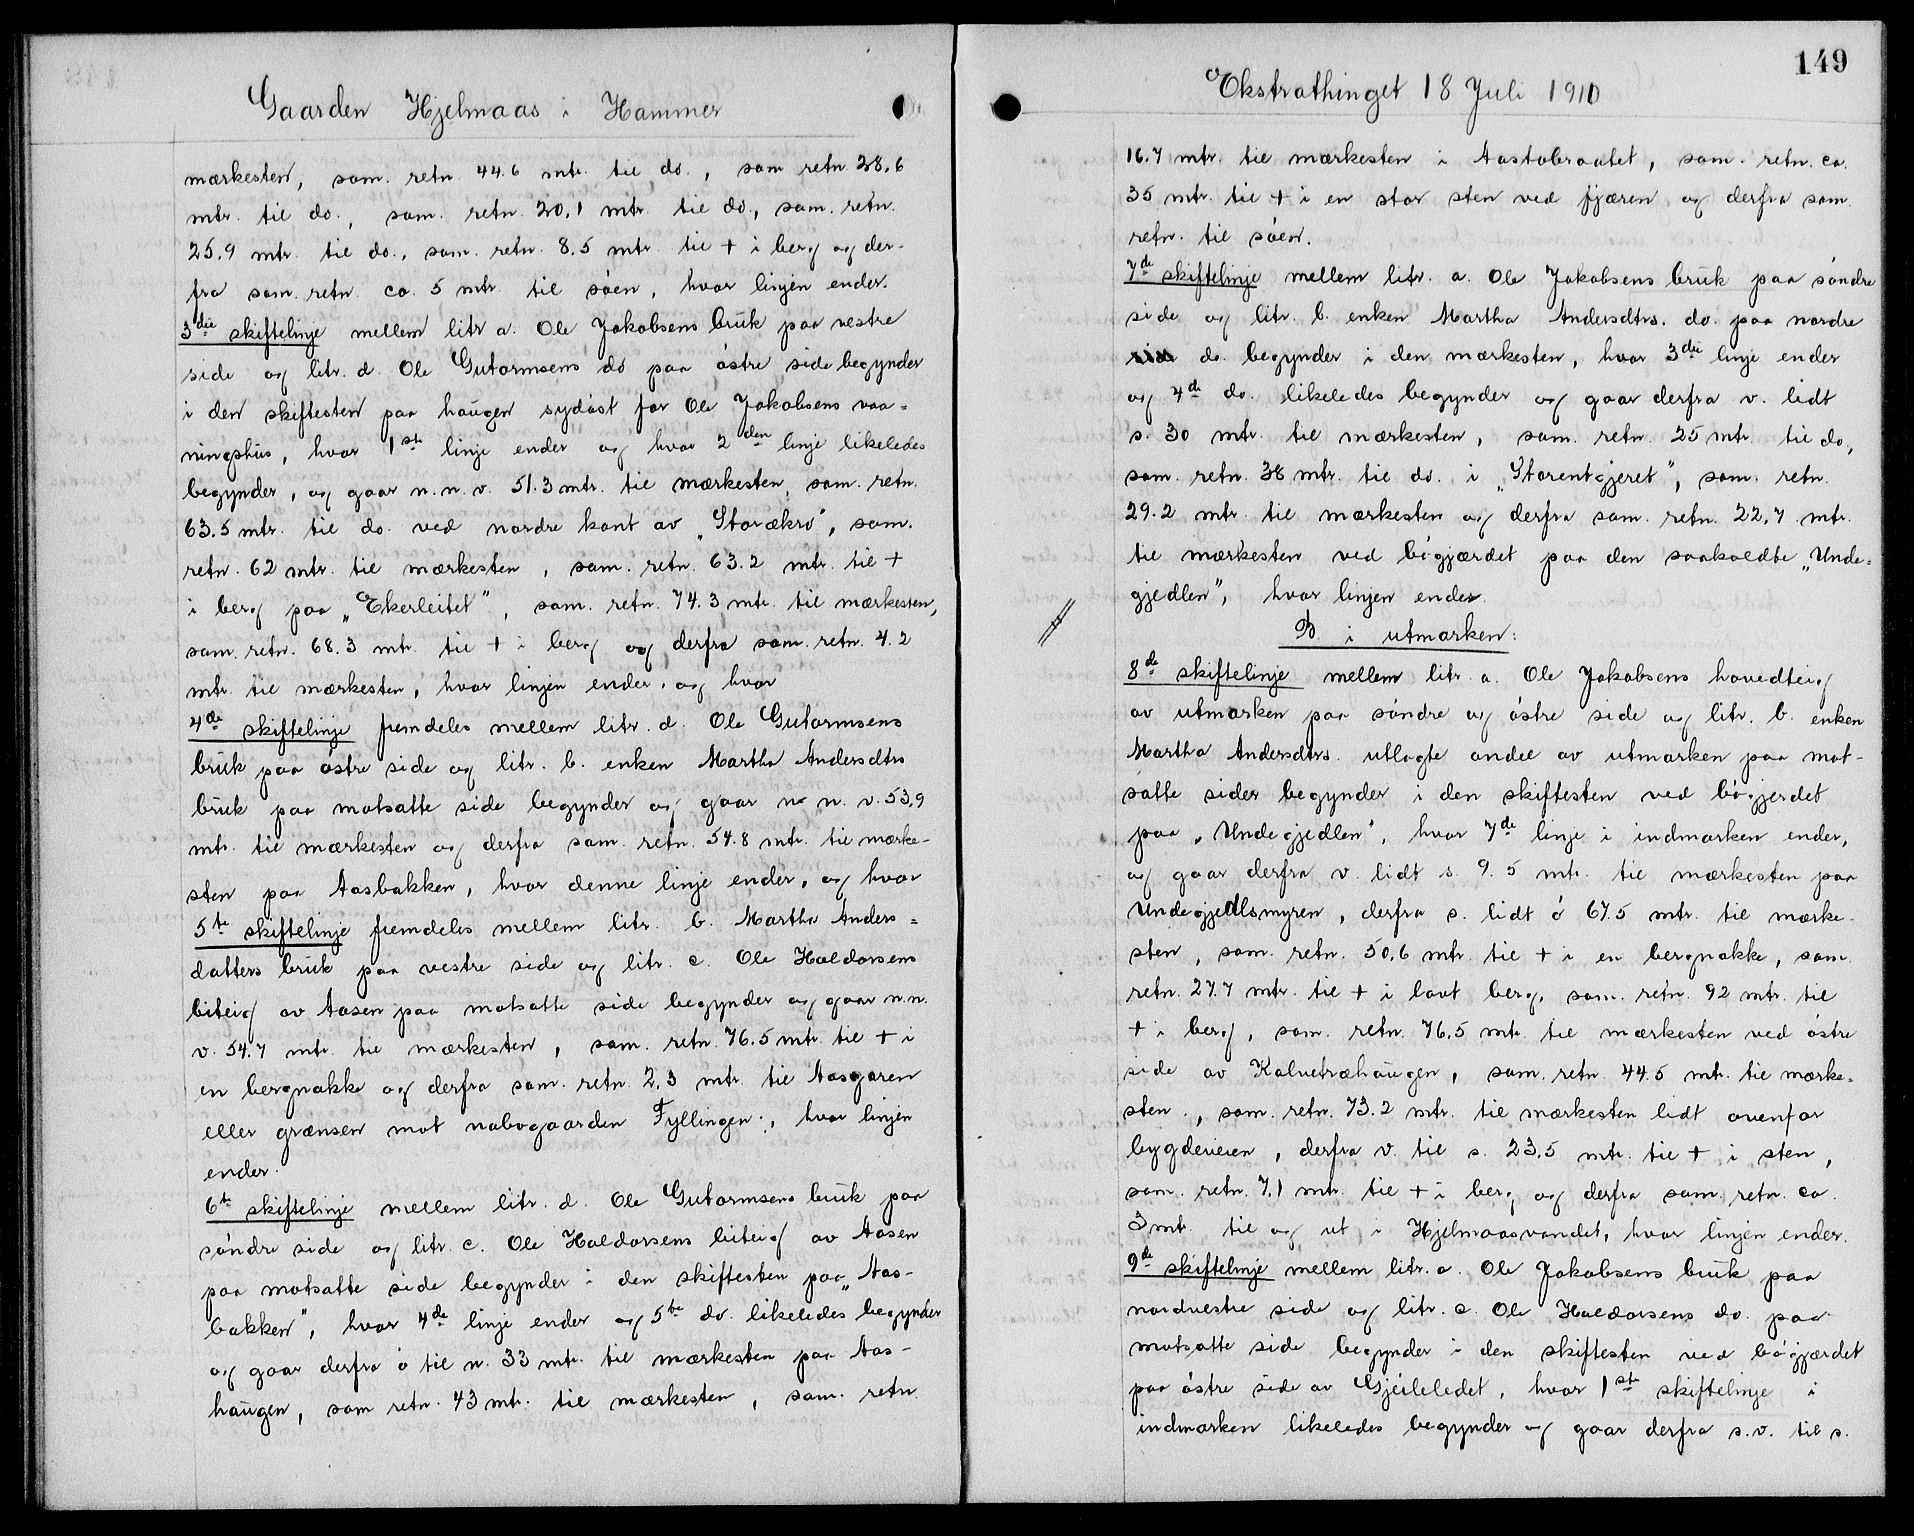 Gaarden Hjelmaas i Hammer
mærkesten, sam. retn. 44.6 mtr. til do., sam retn 28.6
mtr. til do., sam. retn. 20,1 mtr. til do., sam. retn.
25.9 mtr. til do., sam. retn. 8.5 mtr. til + i berg og der-
fra sam. retn. ca. 5 mtr. til søen, hvor linjen ender.
3die skiftelinje mellem litr a. Ole Jakobsens bruk paa vestre
side og litr. d. Ole Gutormsens do paa østre side begynder
i den skiftesten paa haugen sydøst for Ole Jakobsens vaa=
ningshus, hvor 1ste linje ender og hvor 2den linje likeledes
begynder, og gaar n.n.v. 51.3 mtr. til mærkesten, sam. retn.
63.5 mtr. til do. ved nordre kant av „Storækro", sam.
retn. 62 mtr. til mærkesten, sam. retn. 63.2 mtr. til +
i berg paa „Ekerleitet", sam. retn. 74.3 mtr. til mærkesten,
sam. retn. 68.3 mtr. til + i berg og derfra sam. retn. 4.2
mtr. til mærkesten, hvor linjen ender, og hvor
4de skiftelinje fremdeles mellem litr. d. Ole Gutormsens
bruk paa østre side og litr. b. enken Martha Andersdtrs
bruk paa motsatte side begynder og gaar n n. v. 53,9
mtr. til mærkesten og derfra sam. retn. 54.8 mtr. til mærke-
sten paa Aasbakken, hvor denne linje ender, og hvor
5te skiftelinje fremdeles mellem litr. b. Martha Anders=
datters bruk paa vestre side og litr. c. Ole Haldorsens
biteig av Aasen paa motsatte side begynder og gaar n.n.
v. 54.7 mtr. til mærkesten, sam. retn. 76.5 mtr. til + i
en bergnakke og derfra sam. retn. 2,3 mtr. til Aasgaren
eller grænsen mot nabogaarden Fyllingen., hvor linjen
ender.
6te skiftelinje mellem litr. d. Ole Gutormsens bruk paa
søndre side og litr. c. Ole Haldorsens biteig av Aasen
paa motsatte side begynder i den skiftesten paa „Aas-
bakken", hvor 4de linje ender og 5te do. likeledes begynder
og gaar derfra ø til n. 33 mtr. til mærkesten paa Aas-
haugen, sam retn. 43 mtr. til mærkesten, sam. retn.
149
Ekstrathinget 18 Juli 1910
16.7 mtr. til mærkesten i Aastobraatet, sam. retn. ca.
35 mtr. til + i en stor sten ved fjæren og derfra sam.
retn. til søen.
7de skiftelinje mellem litr. a. Ole Jakobsens bruk paa søndre
side og litr. b. enken Martha Andersdtrs. do. paa nordre
do. begynder i den mærkesten, hvor 3die linje ender
og 4de do. likeledes begynder og gaar derfra v. lidt
s. 30 mtr. til mærkesten, sam. retn. 25 mtr. til do,
sam. retn. 38 mtr. til do. i „Storentgjeret", sam. retn.
29.2 mtr. til mærkesten og derfra sam. retn. 22.7 mtr.
til mærkesten ved bøgjærdet paa den saakaldte „Unde=
gjedlen", hvor linjen ender.
B. i utmarken:
8de skiftelinje mellem litr. a. Ole Jakobsens hovedteig
av utmarken paa søndre og østre side og litr. b. enken
Martha Andersdtrs. utlagte andel av utmarken paa mot-
satte sider begynder i den skiftesten ved bøgjerdet
paa „Undegjedlen", hvor 7de linje i indmarken ender,
og gaar derfra v. lidt s. 9.5 mtr. til mærkesten paa
Undegjedlsmyren, derfra s. lidt ø 67.5 mtr. til mærke-
sten, sam. retn. 50,6 mtr. til + i en bergnakke, sam.
retn. 27.7 mtr. til + i lavt berg, sam. retn. 92 mtr. til
+ i berg, sam. retn. 76,5 mtr. til mærkesten ved østre
side av Kalvetræhaugen, sam. retn. 44.5 mtr. til mærke=
sten., sam. retn. 73.2 mtr. til mærkesten lidt ovenfor
bygdeveien, derfra v. til s. 23,5 mtr. til + i sten,
sam. retn. 7,1 mtr. til + i berg og derfra sam. retn. ca.
3 mtr. til og ut i Hjelmaasvandet, hvor linjen ender.
9de skiftelinje mellem litr. a. Ole Jakobsens bruk paa
nordvestre side og litr. c. Ole Haldorsens do. paa
motsatte side begynder i den skiftesten ved bøgjærdet
paa østre side av Gjeileledet, hvor 1ste skiftelinje i
indmarken likeledes begynder og gaar derfra s.v. til s.